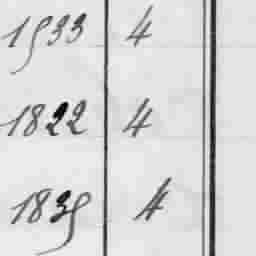 1933 4
1822 4
1839 4